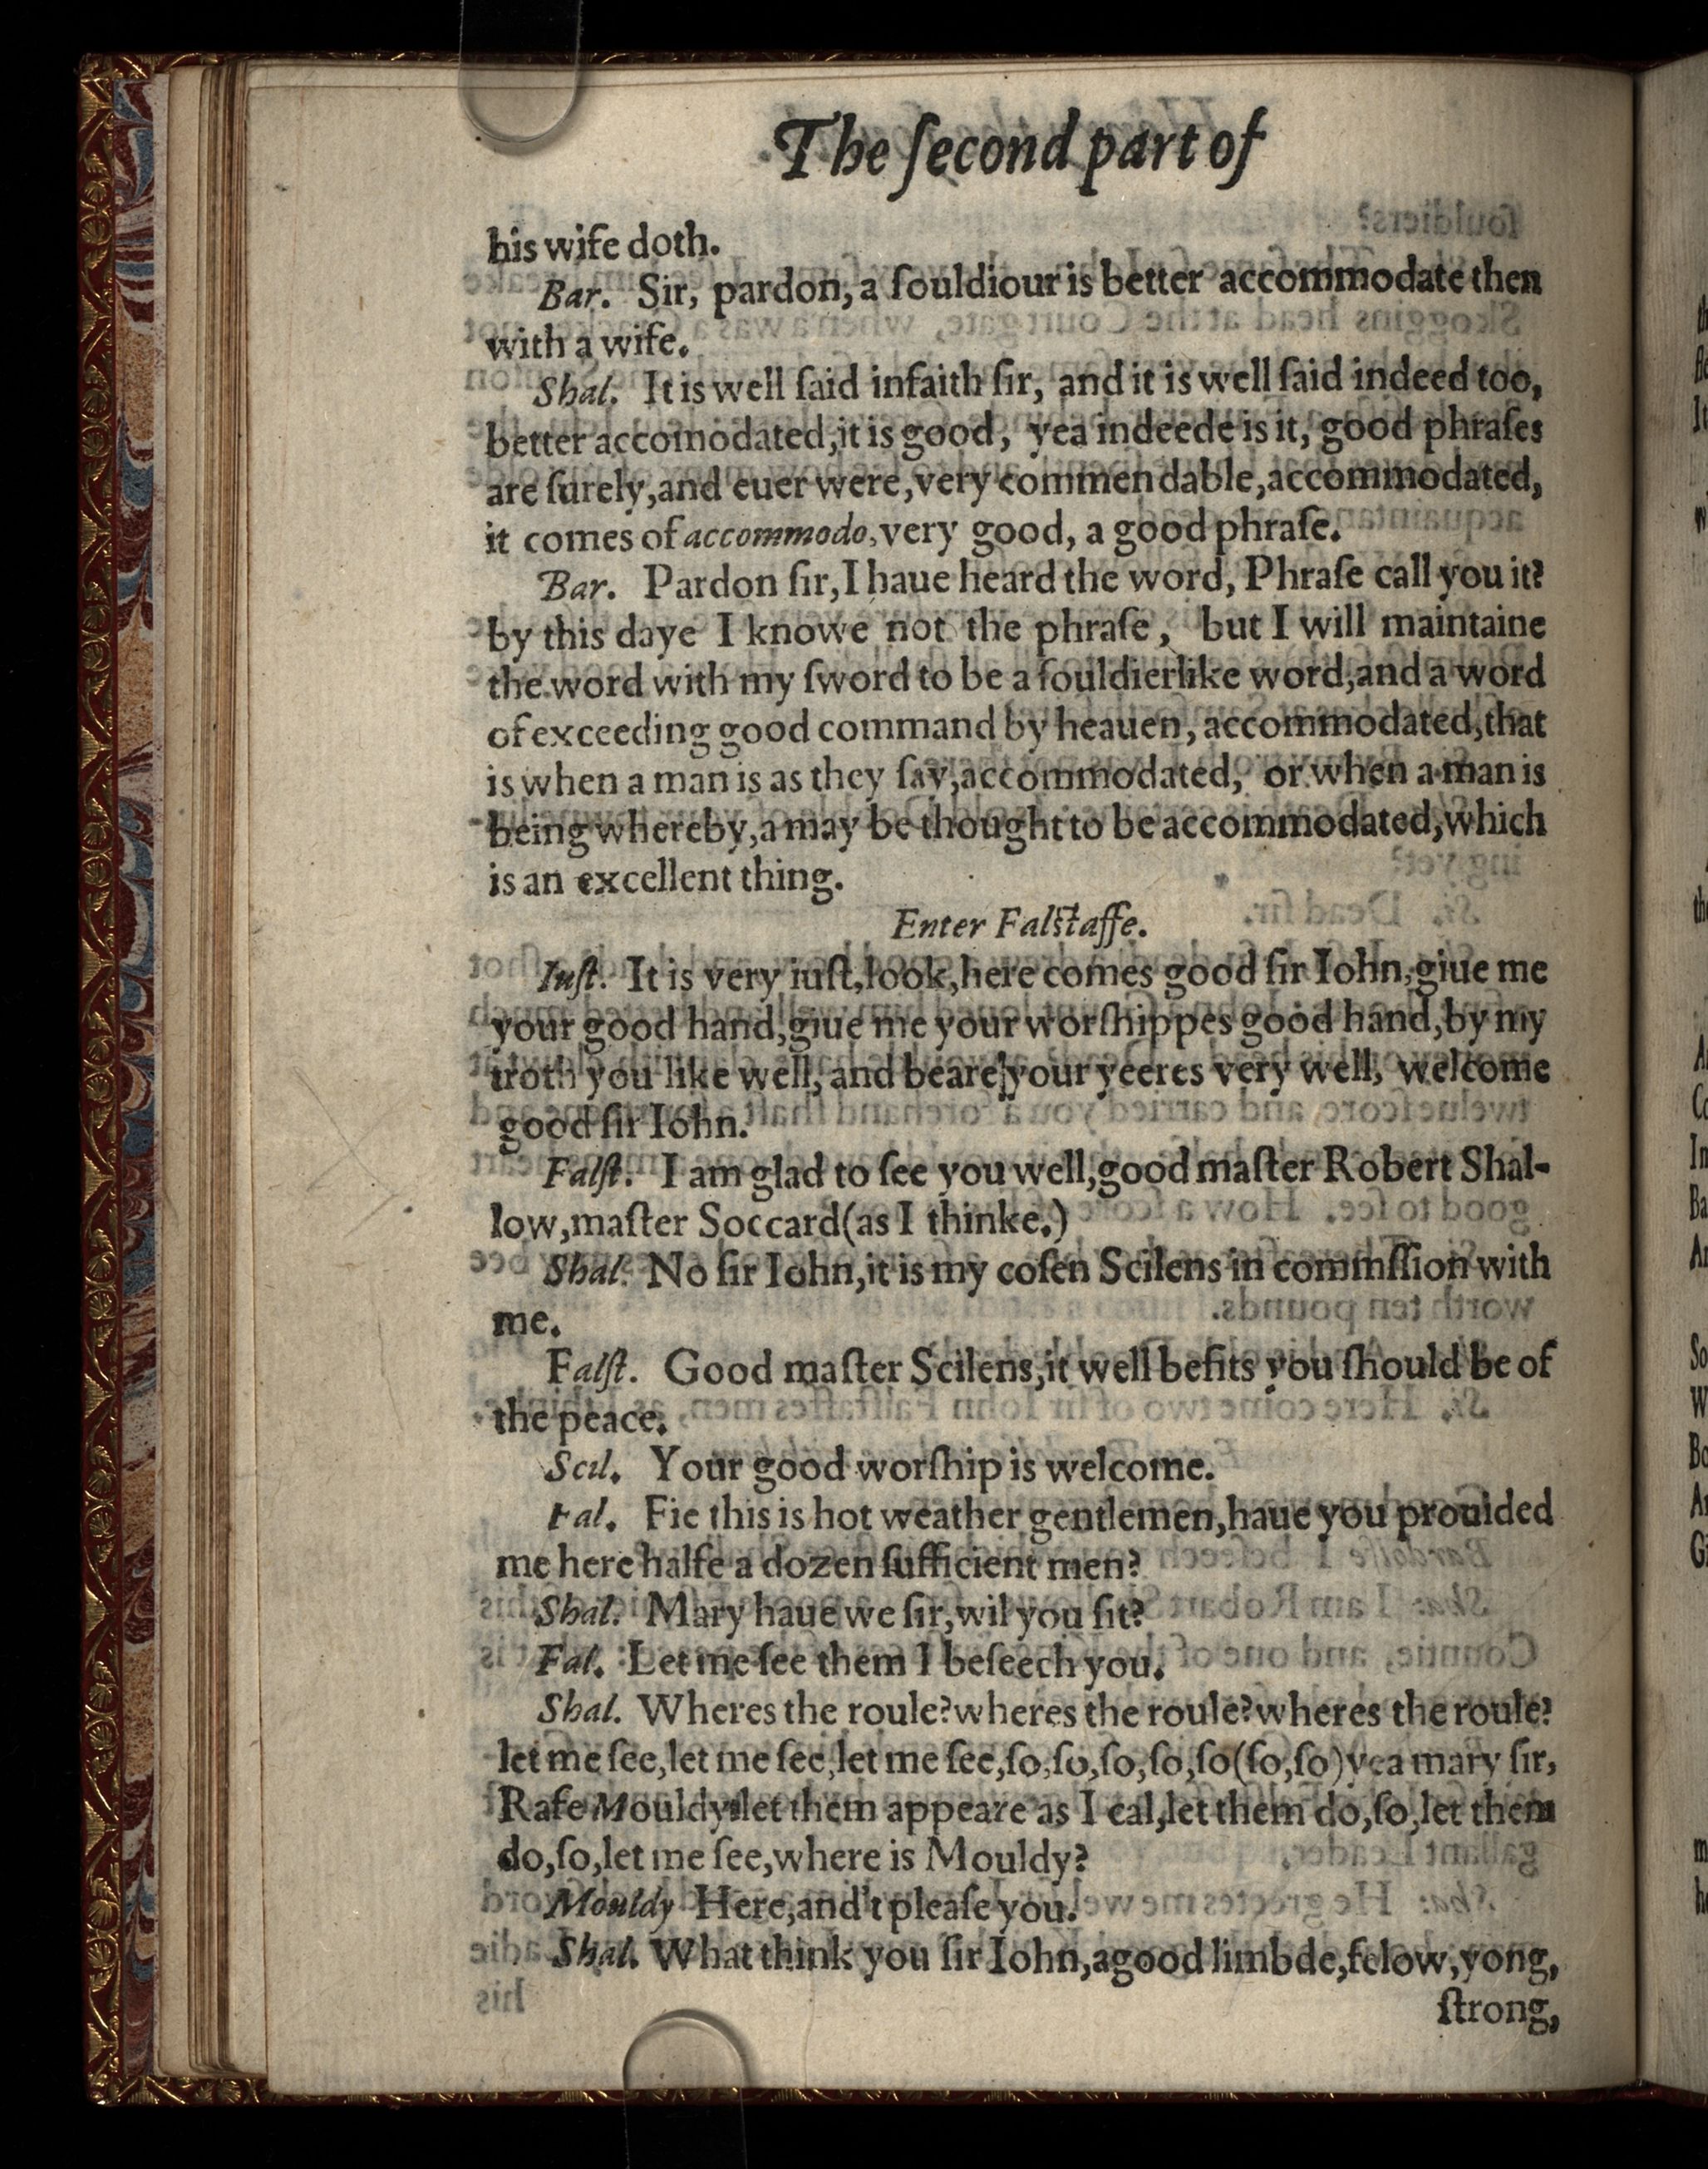 The ſecond part of
his wife doth.
Bar. Sir, pardon, a ſouldiour is better accommodate then
with a wife.
Shal. It is well ſaid infaith ſir, and it is well ſaid indeed too,
better accomodated, it is good, yea indeede is it, good phraſes
are ſurely, and euer were, very commendable, accommodated,
it comes of accommodo, very good, a good phraſe.
Bar. Pardon ſir, I haue heard the word, Phraſe call you it?
by this daye I knowe not the phraſe, but I will maintaine
the word with my ſword to be a ſouldierlike word, and a word
of exceeding good command by heauen, accommodated, that
is when a man is as they ſay, accommodated, or when a man is
being whereby, a may be thought to be accommodated, which
is an excellent thing.
Enter Falſtaffe.
Iuſt. It is very iuſt, look, here comes good ſir Iohn, giue me
your good hand, giue me your worſhippes good hand, by my
troth you like well, and beare your yeeres very well, welcome
good ſir Iohn.
Falſt. I am glad to ſee you well, good maſter Robert Shal-
low, maſter Soccard (as I thinke.)
Shal. No ſir Iohn, it is my coſen Scilens in commſſion with
me.
Falſt. Good maſter Scilens, it well befits you ſhould be of
the peace.
Scil. Your good worſhip is welcome.
Fal. Fie this is hot weather gentlemen, haue you prouided
me here halfe a dozen ſufficient men?
Shal. Mary haue we ſir, wil you ſit?
Fal. Let me ſee them I beſeech you.
Shal. Wheres the roule? wheres the roule? wheres the roule?
let me ſee, let me ſee, let me ſee, ſo, ſo, ſo, ſo, ſo (ſo, ſo) yea mary ſir,
Rafe Mouldy let them appeare as I cal, let them do, ſo, let them
do, ſo, let me ſee, where is Mouldy?
Mouldy Here, and't pleaſe you.
Shal. What think you ſir Iohn, agood limbde, felow, yong,
ſtrong,